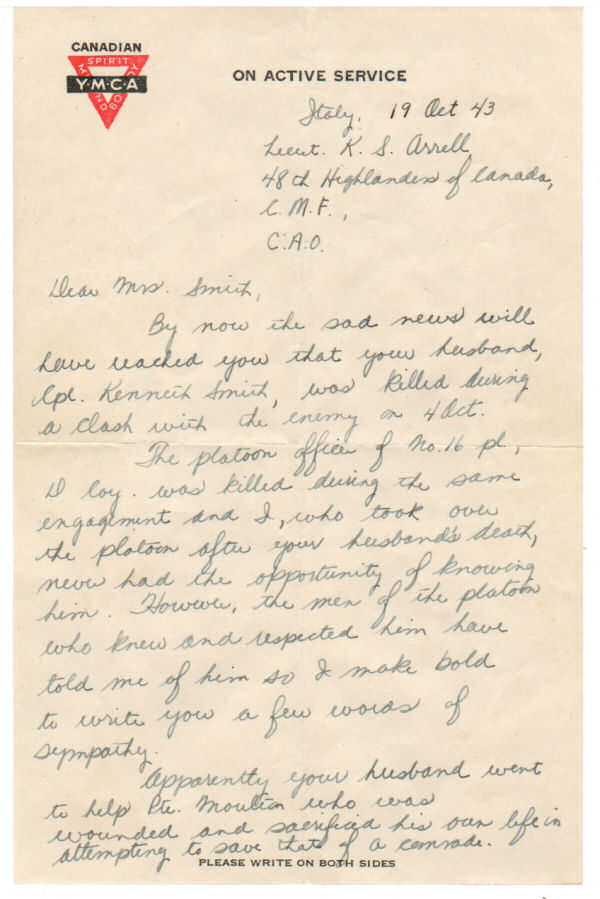 CANADIAN
SPIRIT
MIND
BODY
Y·M·C·A
ON ACTIVE SERVICE
Italy, 19 Oct 43
Lieut. K. S. Arrell,
48th Highlanders of Canada,
C.M.F.,
C.A.O.
Dear Mrs. Smith,
By now the sad news will
have reached you that your husband,
Cpl. Kenneth Smith, was killed during
a clash with the enemy on 4 Oct.
The platoon officer of No. 16 pl,
D Coy. was killed during the same
engagement and I, who took over
the platoon after your husband's death,
never had the opportunity of knowing
him. However, the men of the platoon
who knew and respected him have
told me of him so I make bold
to write you a few words of
sympathy.
Apparently your husband went
to help Pte. Moulton who was
wounded and sacrificed his own life in
attempting to save that of a comrade.
PLEASE WRITE ON BOTH SIDES